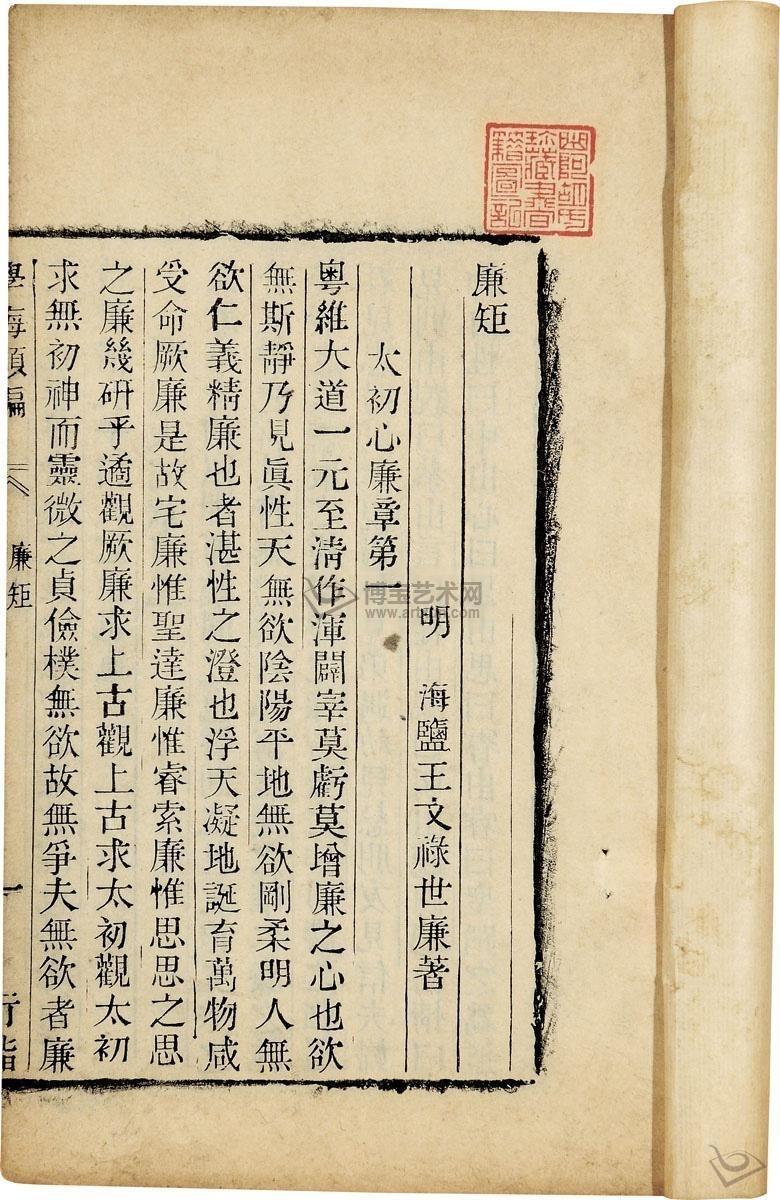 廉矩
明 海鹽王文祿世廉著
太初心廉章第一
粵維大道一元至清作渾闢宰莫虧莫增廉之心也欲
無斯靜乃見眞性天無欲陰陽平地無欲剛柔明人無
欲仁義精廉也者湛性之澄也浮天凝地誕育萬物咸
受命厥廉是故宅廉惟聖達廉惟睿索廉惟思思之思
之廉幾硏乎遹觀厥廉求上古觀上古求太初觀太初
求無初神而靈微之貞儉樸無欲故無爭夫無欲者廉
學海類編 廉矩 一 行詣
博宝艺术网